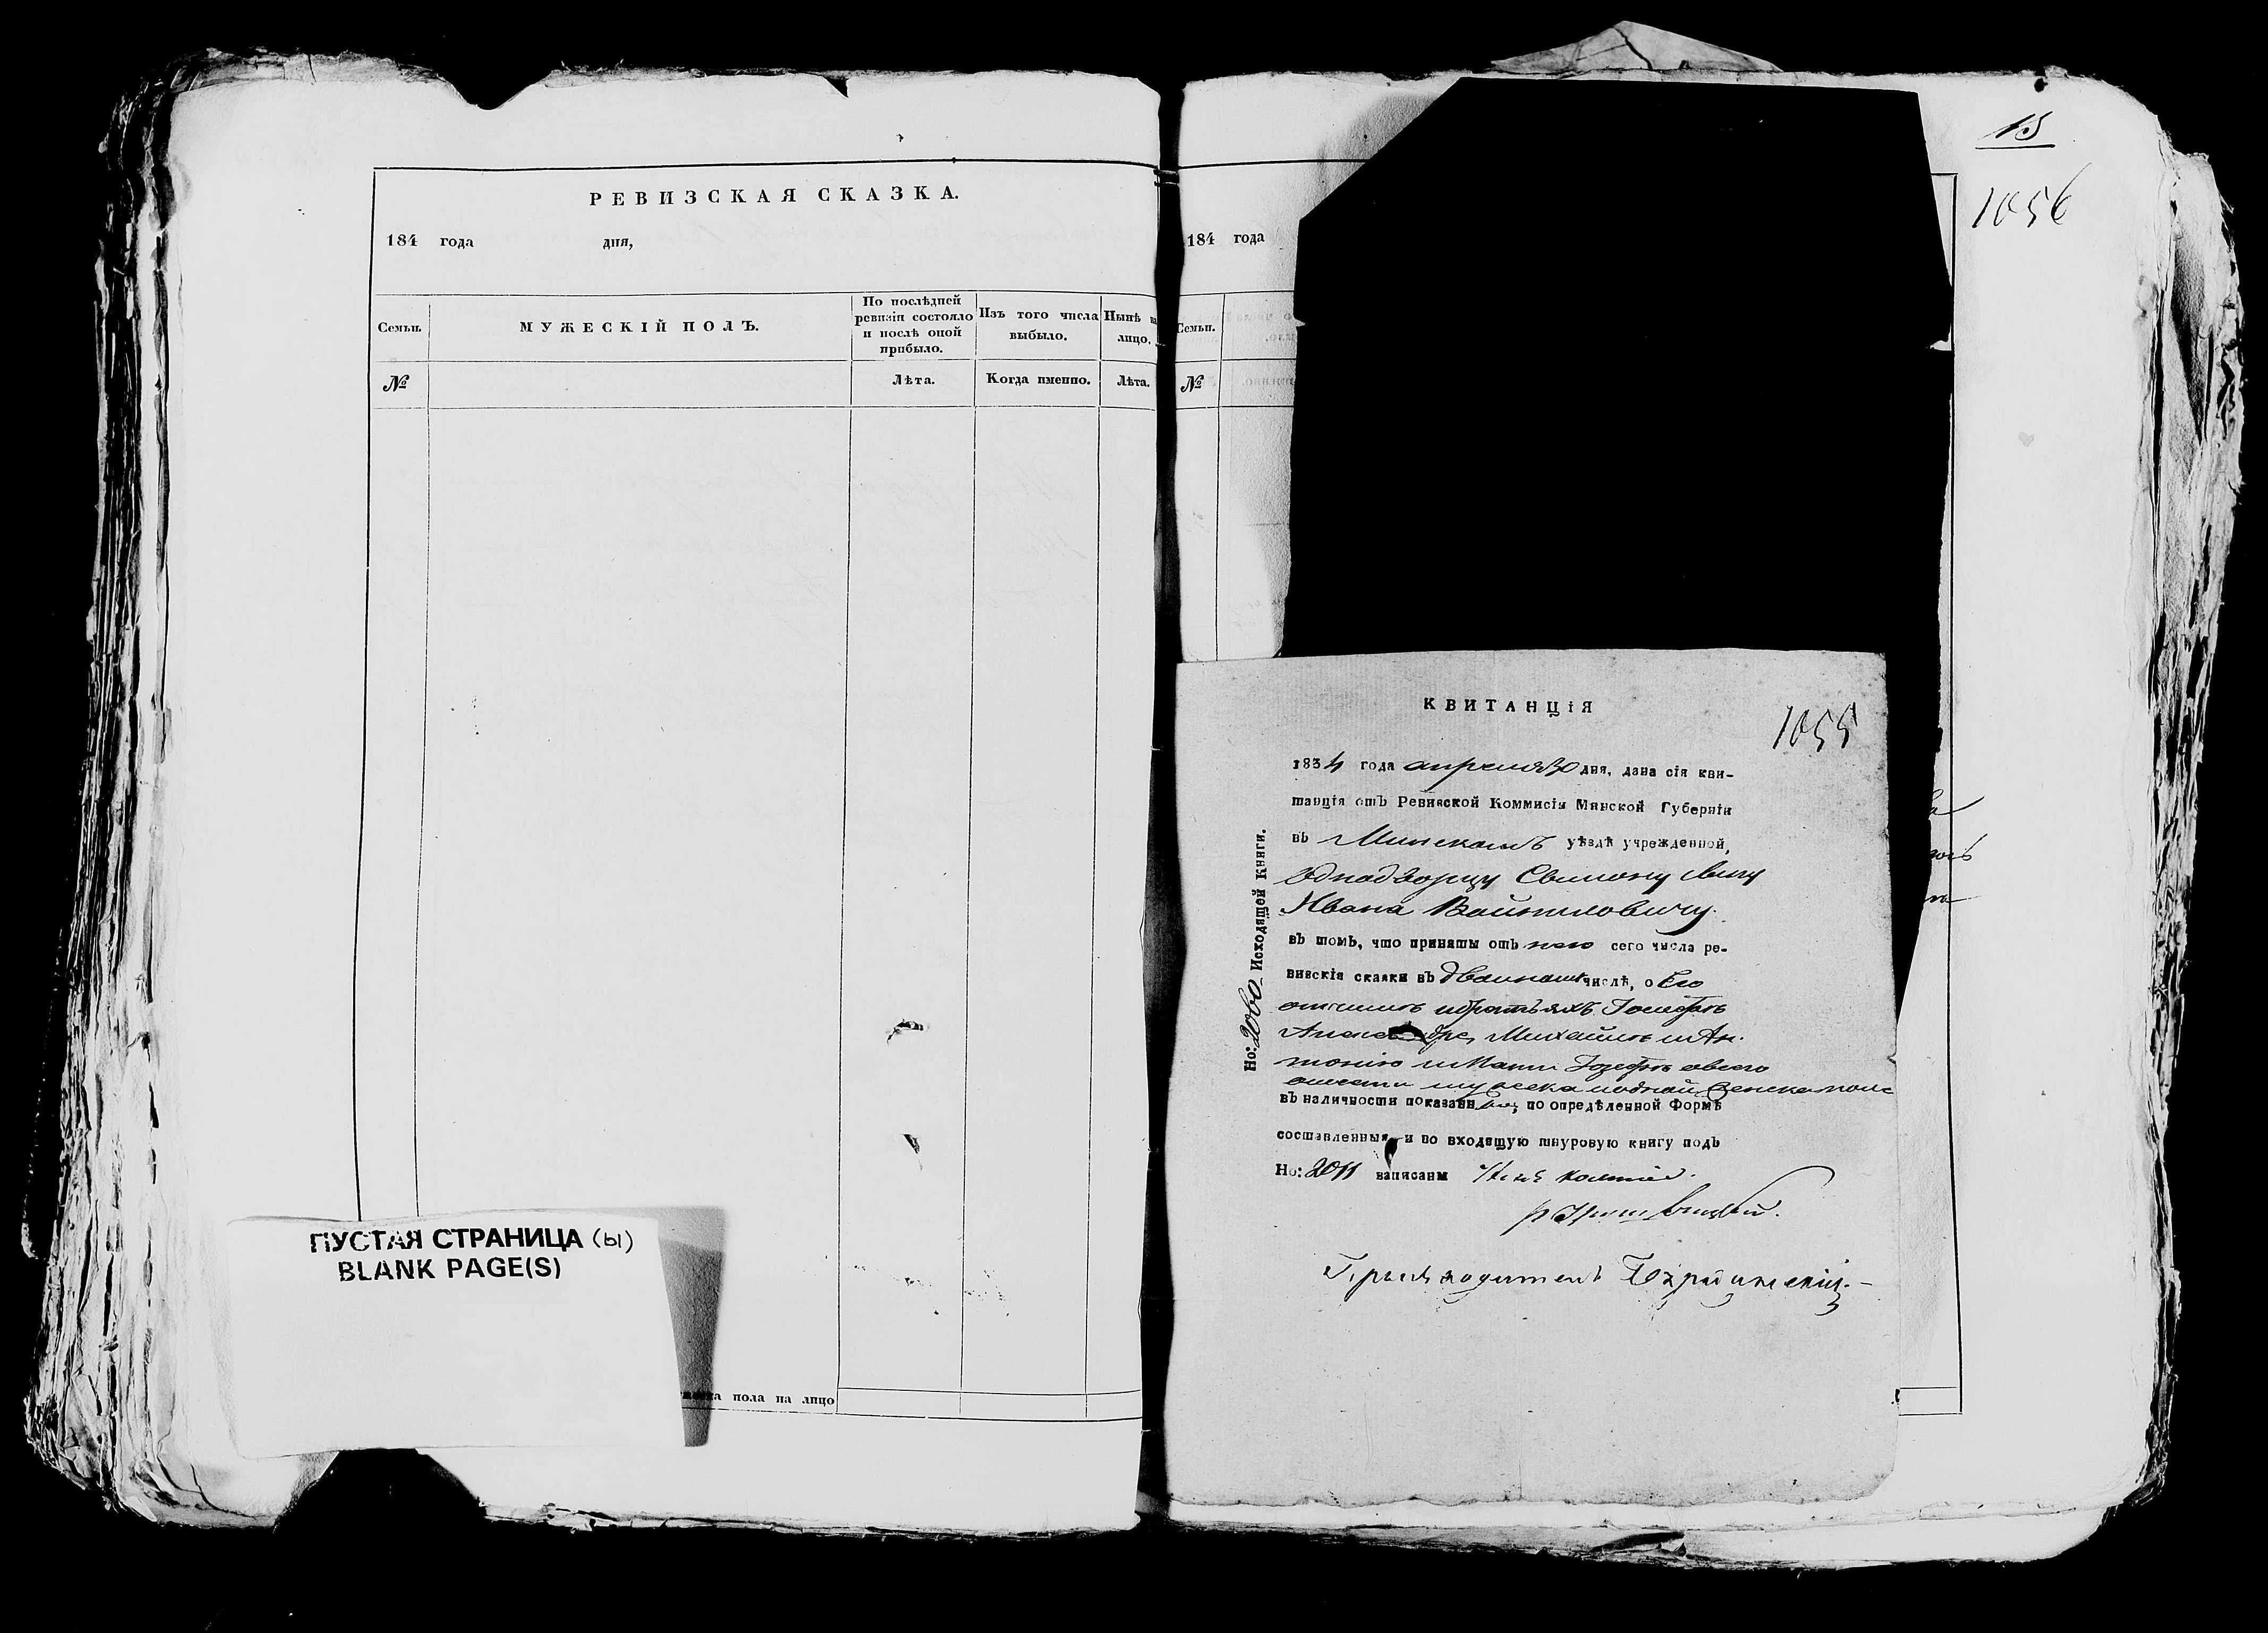 РЕВИЗСКАЯ СКАЗКА.
184 года дня,
Семьи.
МУЖЕСКІЙ ПОЛЪ.
По послѣдней
ревизіи состояло
и послѣ оной
прибыло.
Изъ того числа
выбыло.
Нынѣ на
лицо.
№
Лѣта.
Когда именно.
Лѣта.
ПУСТАЯ СТРАНИЦА (ы)
BLANK PAGE(S)
пола на лицо
15
1056
184 года
Семьи.
№
КВИТАНЦІЯ
1055
1834 года апреля 30 дня, дана сія кви-
танція отъ Ревизской Коммисіи Минской Губерніи
въ Минскомъ уѣздѣ учрежденной,
Однодворцу Симону
Ивана Войниловичу.
въ томъ, что приняты отъ него сего числа ре-
визскія сказки въ числѣ, о Его
братьяхъ
Михайлѣ и Ан-
тонію
въ наличности показан по опредѣленной Формѣ
составленныя и во входящую шнуровую книгу подъ
Но: 2011 записаны
Но: 2060 Исходящей Книги.